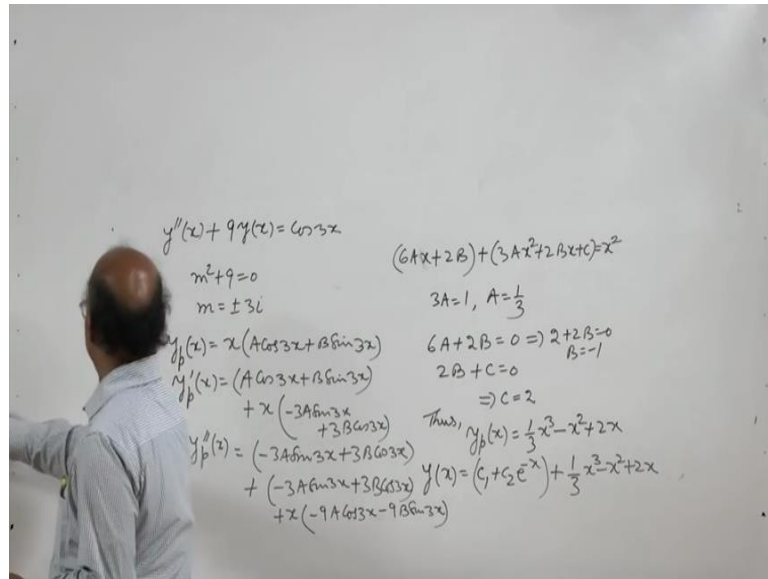 y''(x) + 9y(x) = cos3x
m²+9=0
m = ±3i
y_p(x) = x(Acos3x+Bsin3x)
y_p'(x) = (Acos3x+Bsin3x)
+ x(-3Asin3x
+3Bcos3x)
y_p''(x) = (-3Asin3x+3Bcos3x)
+ (-3Asin3x+3Bcos3x)
+x(-9Acos3x-9Bsin3x)
(6Ax+2B)+(3Ax²+2Bx+C)=x²
3A=1, A=1/3
6A+2B=0 ⇒ 2+2B=0
B=-1
2B+C=0
⇒ C=2
Thus, y_p(x) = 1/3 x³-x²+2x
y(x) = (c₁+c₂e⁻ˣ)+1/3 x³-x²+2x